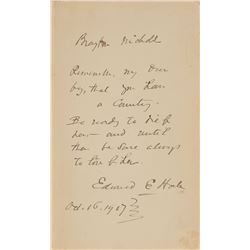 Brayton Nichols
Remember, my dear
boy, that you have
a Country.
Be ready to die for
her — and until
then be sure always
to live for her.
Edward E Hale
Oct. 16. 1907